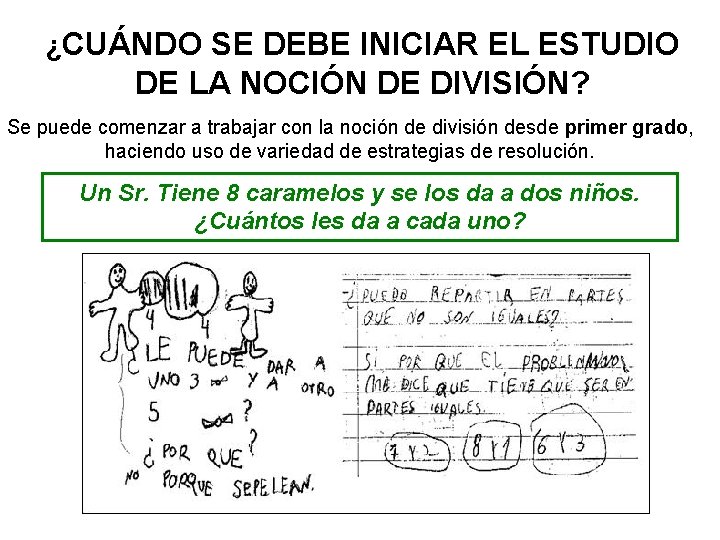 ¿CUÁNDO SE DEBE INICIAR EL ESTUDIO
DE LA NOCIÓN DE DIVISIÓN?
Se puede comenzar a trabajar con la noción de división desde primer grado,
haciendo uso de variedad de estrategias de resolución.
Un Sr. Tiene 8 caramelos y se los da a dos niños.
¿Cuántos les da a cada uno?
4
4
¿LE PUEDE DAR A
UNO 3 Y A OTRO
5 ?
¿POR QUE?
NO PORQUE SEPELEAN.
¿PUEDO REPARTIR EN PARTES
QUE NO SON IGUALES?
SI POR QUE EL PROBLEMA NO
ME DICE QUE TIENE QUE SER EN
PARTES IGUALES.
7 Y 2 8 Y 1 6 Y 3